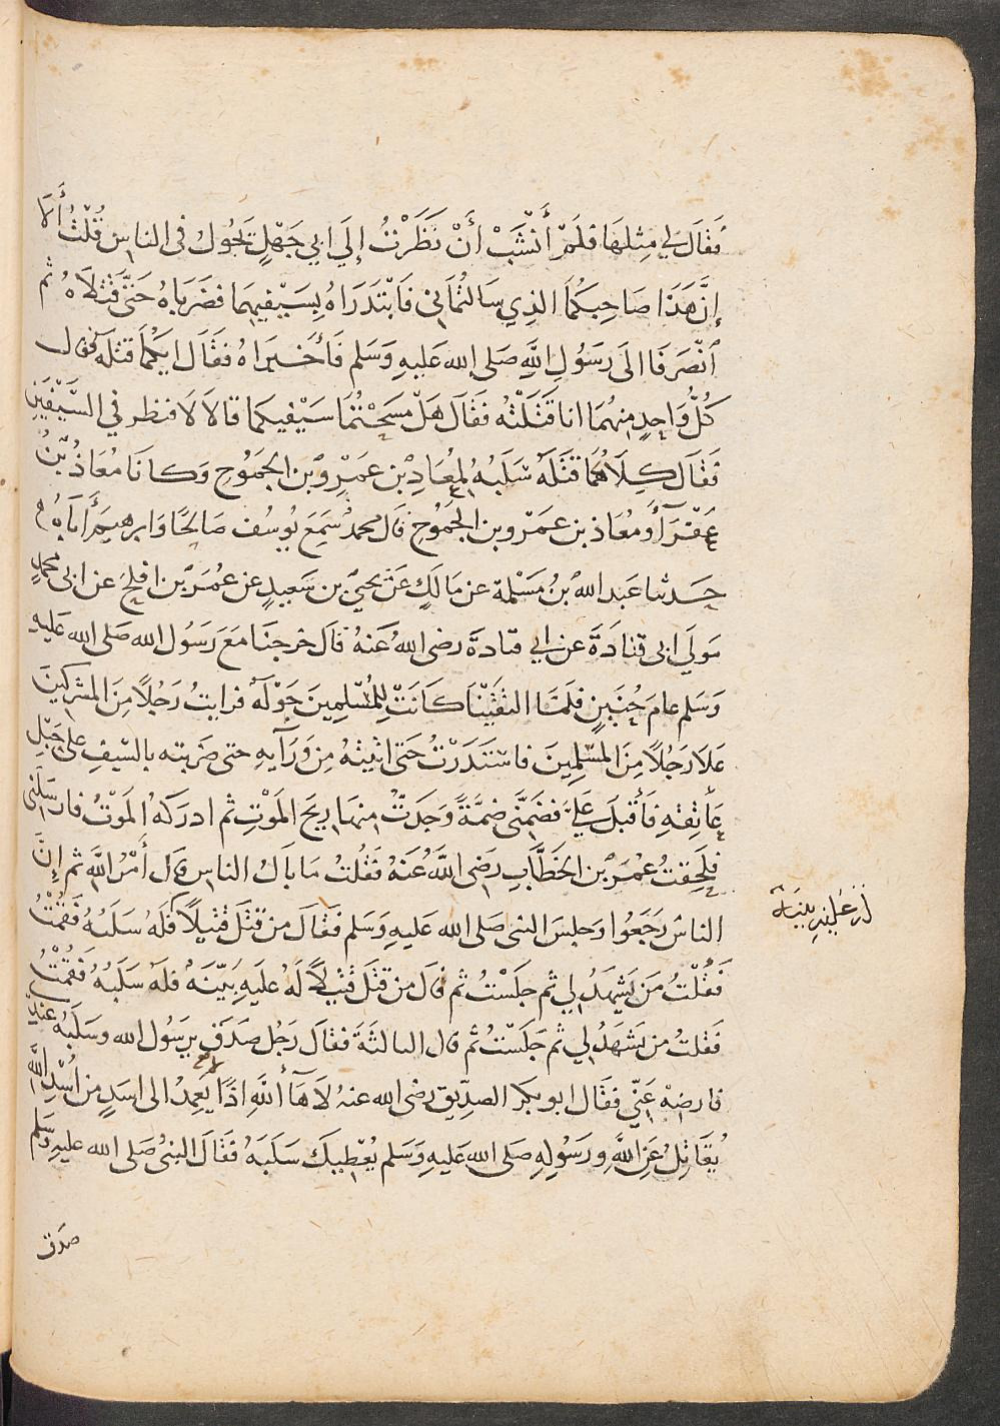 فَقَالَ لِي مِثلهَا فلَمْ أَنْشَبْ أَنْ نَظَرْتُ إِلَى ابي جَهْلٍ يَجُولُ فى الناسِ قُلْتُ أَلَا
إِنَّ هَذَا صَاحِبُكُمَا الذِي سَالتُمَانِي فَابْتَدَرَاهُ بِسَيْفيهِمَا فضَرَبَاهُ حَتَّى قتَلَاهُ ثم
انْصَرَفَا الَى رَسُولِ اللَّهِ صَلى الله عَليهِ وَسَلم فَأَخْبَرَاهُ فقَالَ ايكُمَا قتلهُ فقال
كُلُّ وَاحِدٍ مِنهُمَا انا قتَلْتُه فَقَالَ هَلْ مسَحْتُمَا سَيْفيكمَا قالَا لَا فنظر فى السَّيْفَينِ
فَقَال كِلَاكُمَا قتَلَهُ سَلَبُهُ لِمُعَاذِ بْن عَمْرِو بن الجَمُوحِ وَكانَا مُعَاذُ بْنُ
عَفْرَآءَ وَمُعَاذ بن عَمْرو بن الجَمُوحِ قَالَ محمدٌ سَمِعَ يُوسُف صَالِحًا وَابرهيمُ أَبَاهُ
حَدثنا عَبد اللهِ بنُ مَسْلمَة عن مَالكٍ عَنْ يحيَى بن سَعِيدٍ عن عُمَرَ بن افلَح عن ابى محمدٍ
مَولَى ابى قتادَةَ عن ابي قتادَةَ رضى الله عَنهُ قالَ خرجنَا مَعَ رَسُول الله صَلى الله عَليهِ
وَسَلم عامَ حُنَينٍ فلَمَّا التقَيْنَا كَانَتْ لِلمُسْلِمِينَ جَوْلةٌ فرايتُ رَجُلًا مِنَ المشركينَ
عَلَا رَجُلًا مِنَ المسْلِمِينَ فاسْتَدَرْتُ حَتى اتيتُهُ مِن وَرَآيهِ حتى ضَربته بالسَّيفِ على حَبْلِ
عَاتِقهِ فَأَقبَلَ عَلَيَّ فضَمَّنى ضمَّةً وَجَدتُ منهَا رِيحَ المَوْتِ ثم ادرَكهُ المَوْتُ فارسَلَنى
فلَحِقتُ عُمَرَ بن الخَطَّابِ رَضى اللَّهُ عَنهُ فَقُلتُ مَا بَالُ الناسِ قال أَمْرُ اللَّهِ ثم إِنَّ
الناسَ رَجَعُوا وَجَلسَ النبى صَلى الله عَليهِ وَسَلم فَقَالَ مَن قتَلَ قتِيلًا فَلَهُ سَلَبُهُ فَقُمْتُ
فَقُلْتُ مَن يَشهَدُ لي ثم جلَسْتُ ثم قالَ مَن قتَلَ قتِيلًا لَهُ عليهِ بَيِّنَةٌ فلَهُ سَلَبُهُ فقُمْتُ
فَقُلتُ من يَشْهَدُ لِي ثم جَلَسْتُ ثم قال الثالثَةَ فقَالَ رَجُل صَدَقَ يرسَول الله وسَلَبُه عندِي
فارضِهْ عَنِّي فقَال ابو بكر الصدِّيق رضى الله عنهُ لَا هَآ اللَّهِ اذًا يَعمِدُ الى اسَدٍ مِن أُسْدِ اللَّهِ
يُقَاتِلُ عَنِ اللَّهِ وَرَسُولِهِ صَلى الله عَليهِ وَسَلم يُعْطِيكَ سَلَبَهُ فَقَالَ النبىُّ صَلى الله عليهِ وسَلم
صدق